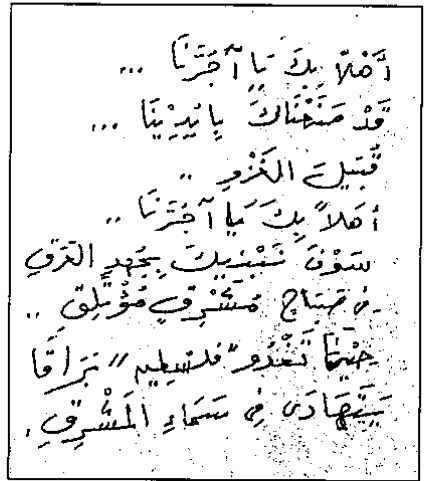 أَهْلاً بِكَ يَا آجُرَّنَا ...
قَدْ صَنَعْنَاكَ بِأَيْدِيْنَا ...
قُبَيْلَ الغَزْوِ ..
أهلاً بِكَ يَا آجُرَّنَا ..
سَوْفَ نَبْنِيكَ بِجُهدِ العَرَقِ
في صَبَاحٍ مُشْرِقٍ مُؤْتَلِقِ ..
حِيْنَما تَغْدُو "فلسطيم" بُرَاقًا
يَتَهَادَى فِي سَمَاءِ المَشْرِقِ.